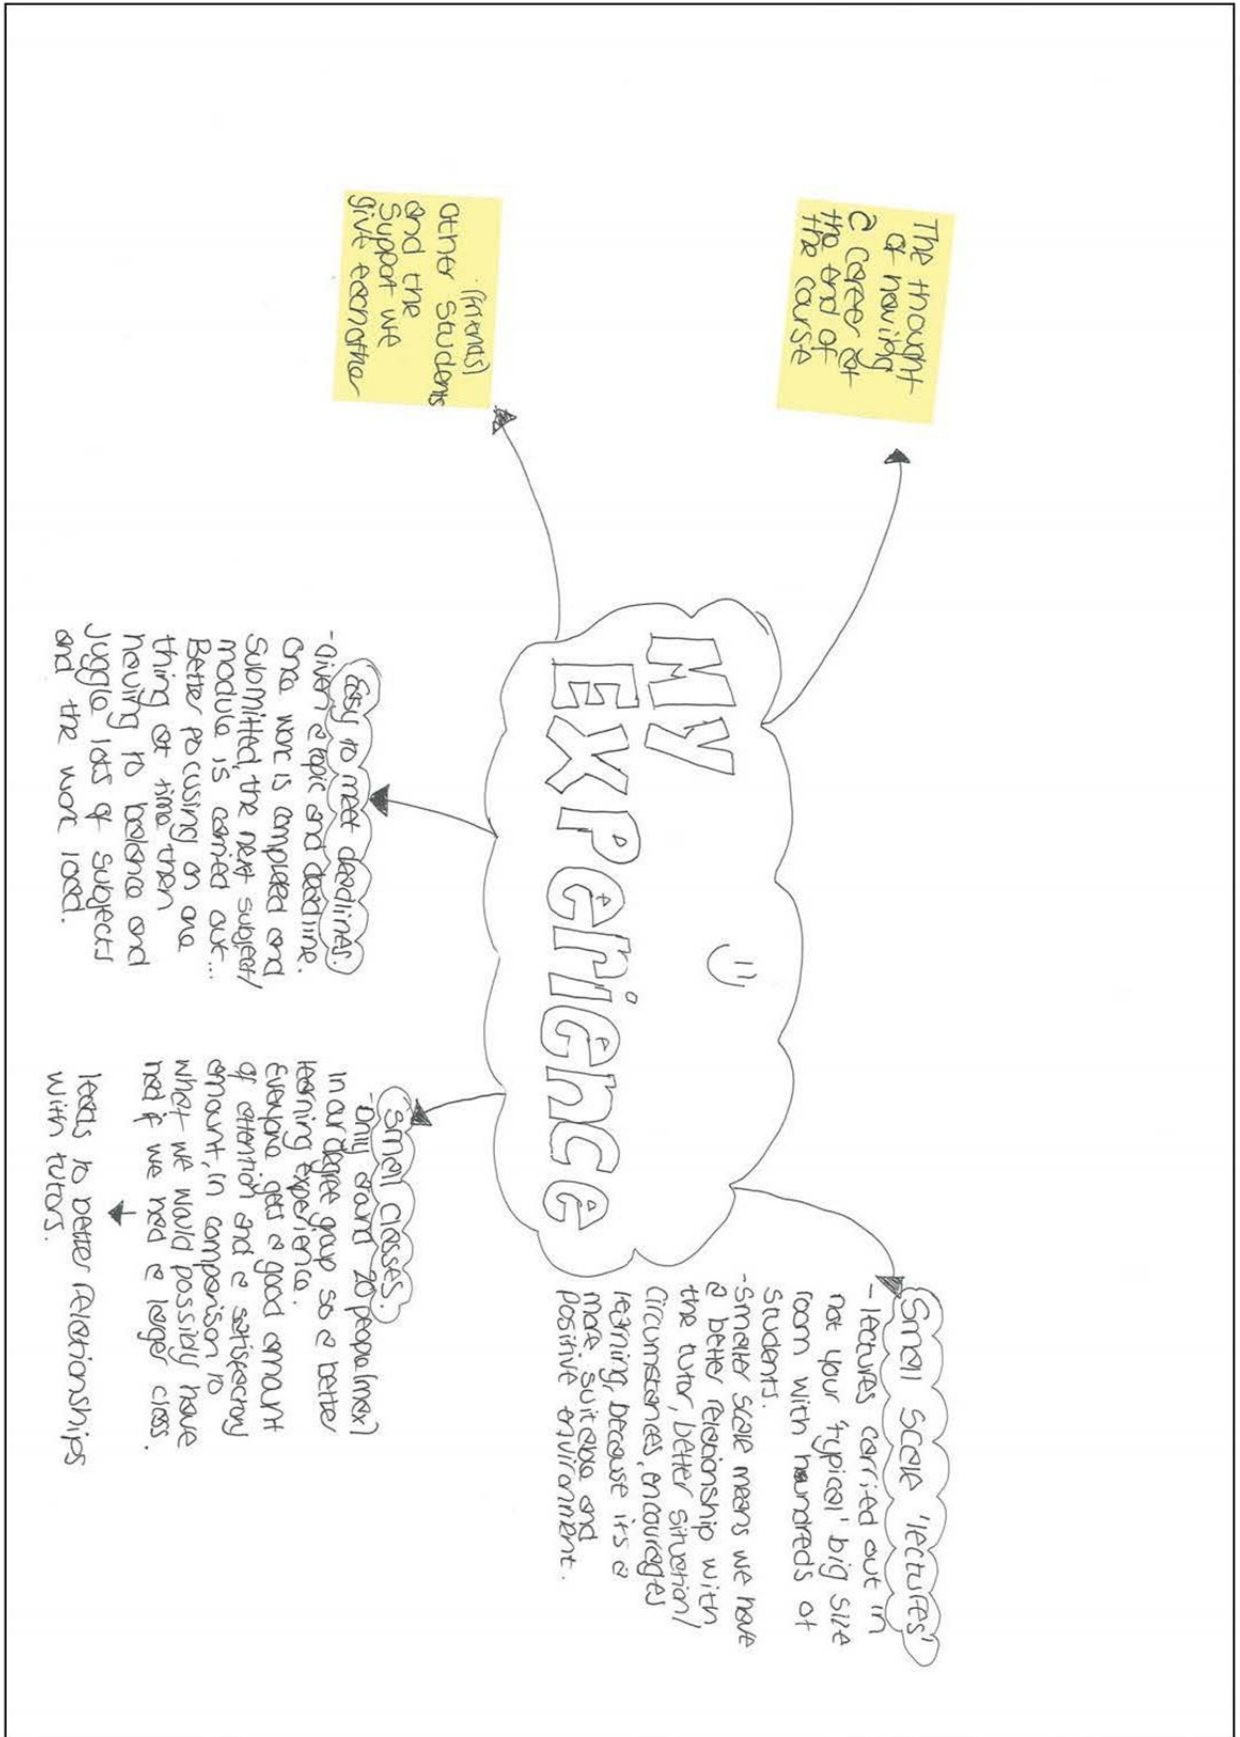 MY
EXPerience
The thought
of having
a career at
the end of
the course
(friends)
other students
and the
support we
give eachother
Easy to meet deadlines.
- Given a topic and deadline.
Once work is completed and
submitted, the next subject/
module is carried out...
Better focusing on one
thing at time then
having to balance and
juggle lots of subjects
and the work load.
Small classes.
- Only around 20 people (max)
in our degree group so a better
learning experience.
Everyone gets a good amount
of attention and a satisfactory
amount, in comparison to
what we would possibly have
had if we had a larger class.
leads to better relationships
with tutors.
Small scale 'lectures'
- lectures carried out in
not your 'typical' big size
room with hundreds of
students.
- Smaller scale means we have
a better relationship with
the tutor, better situation/
circumstances, encourages
learning, because its a
more suitable and
positive environment.